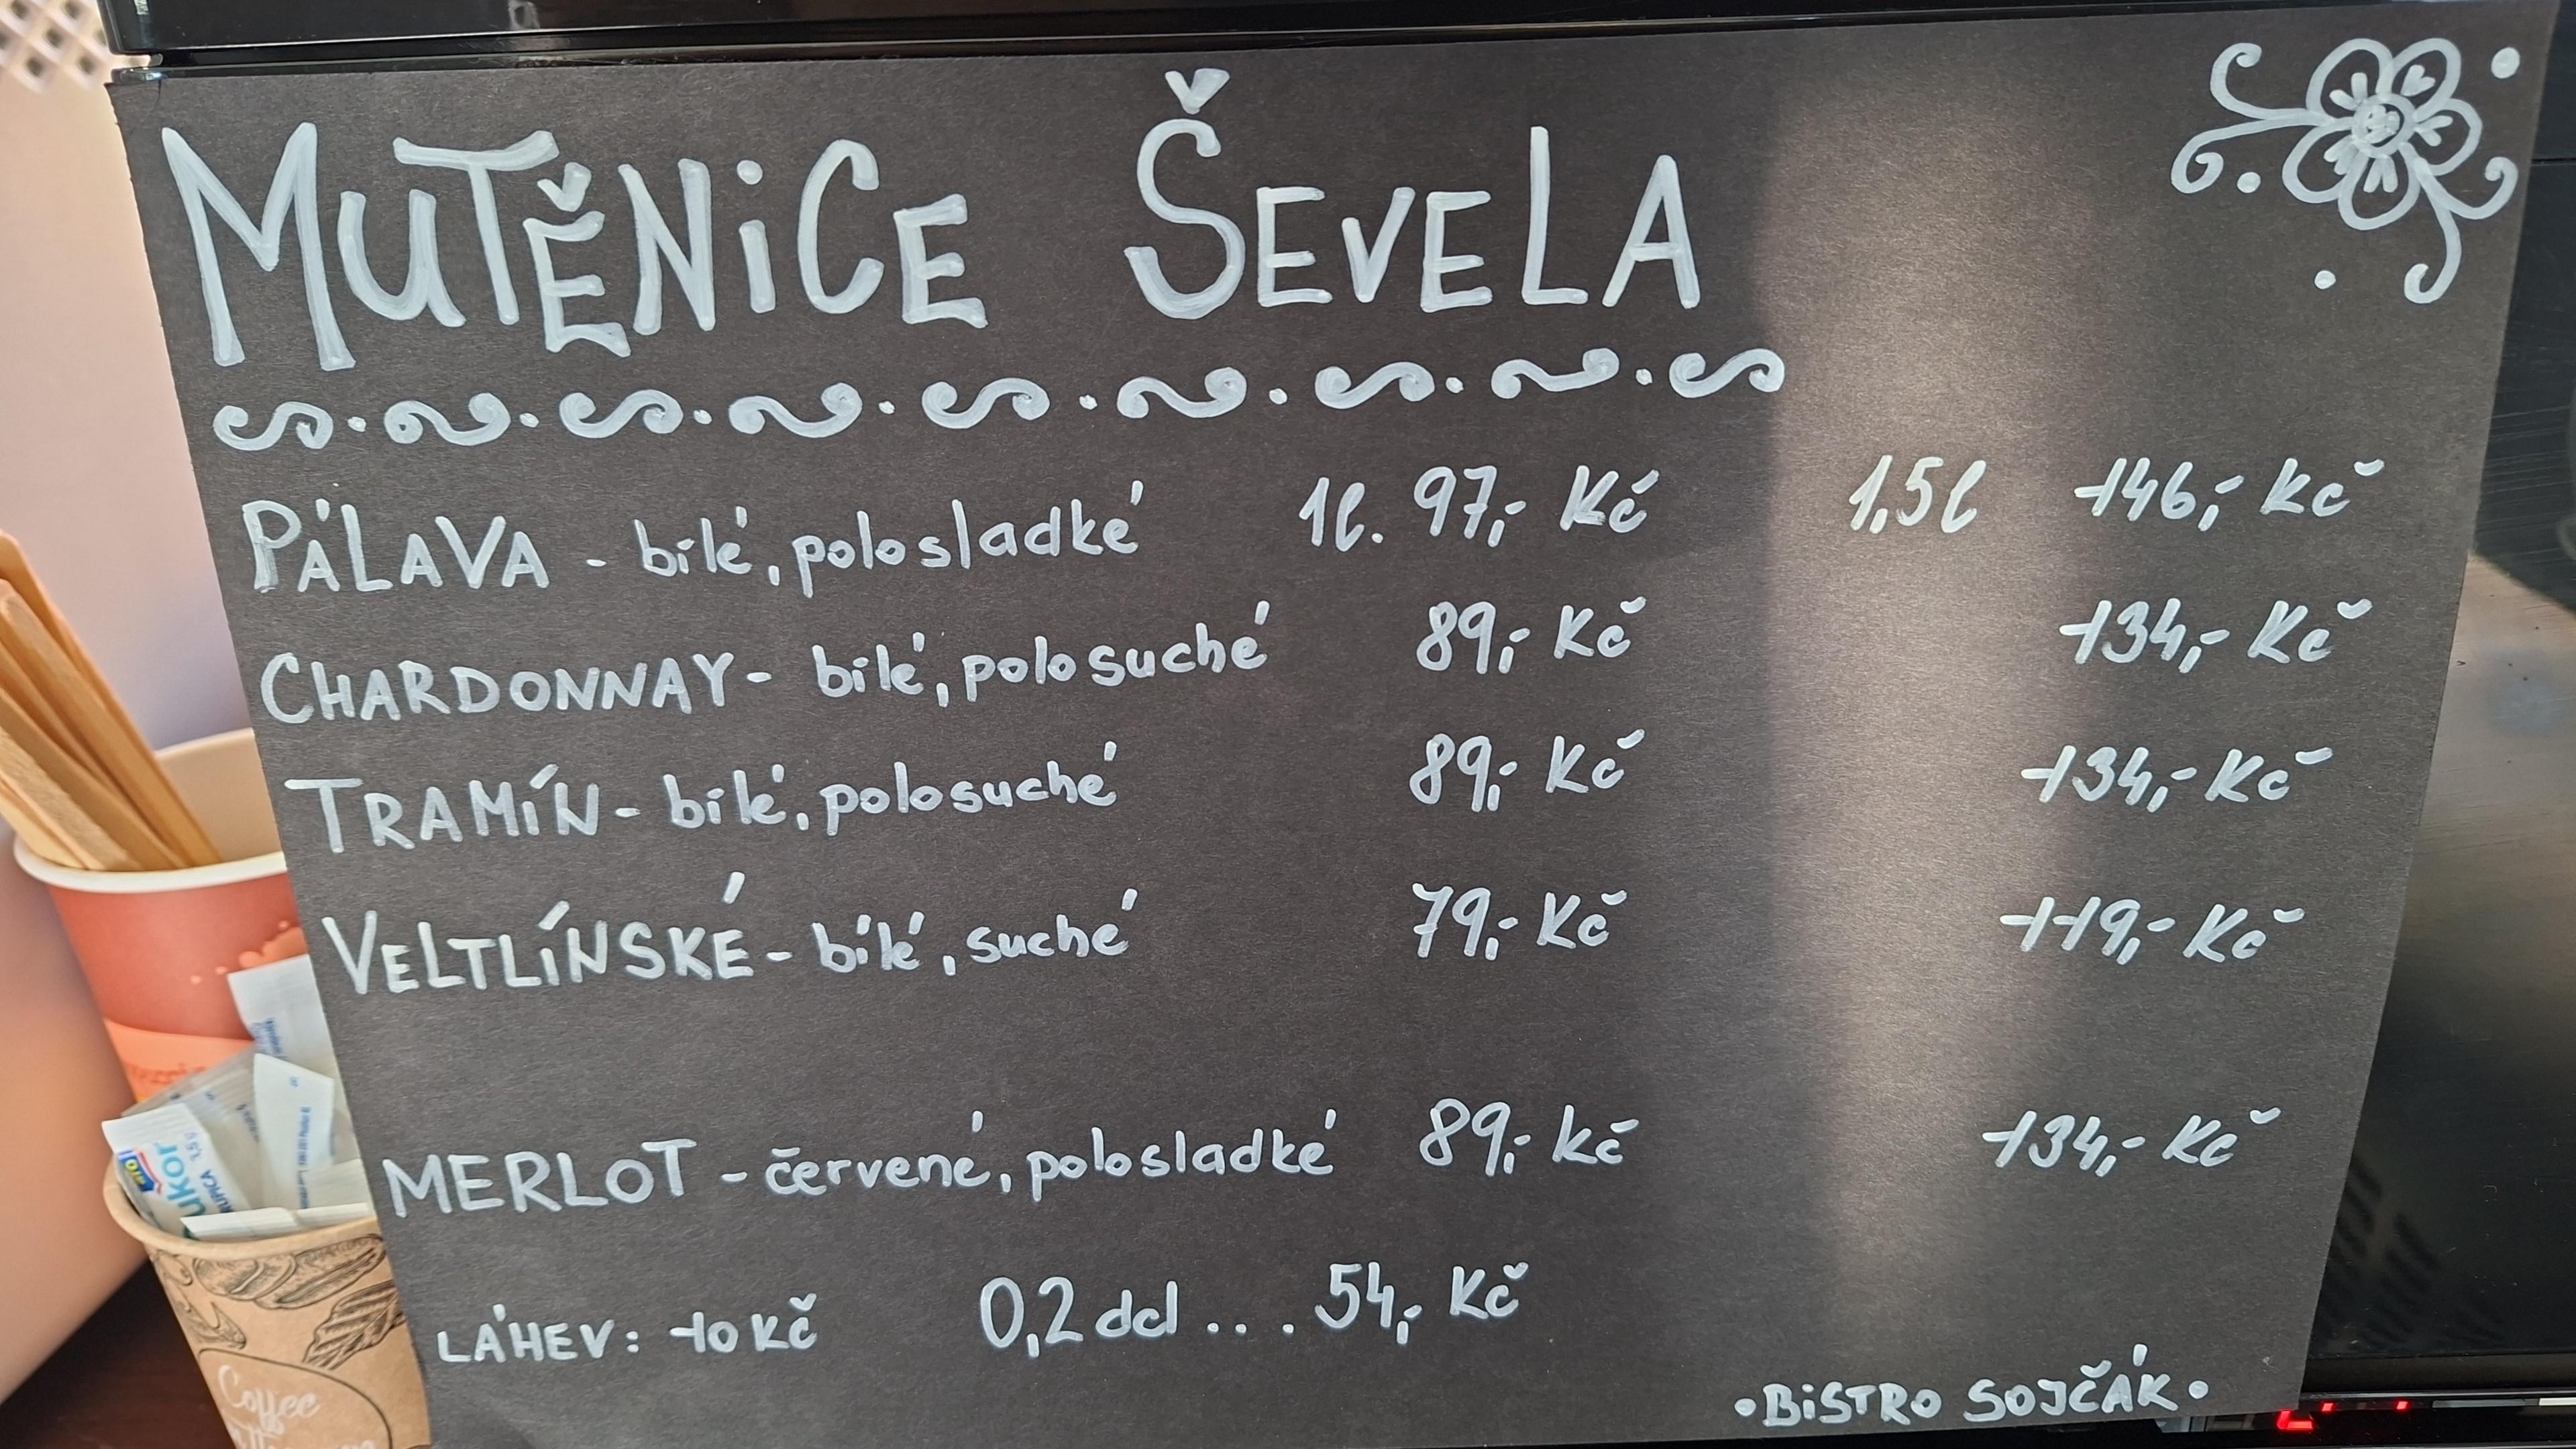 MUTĚNiCE ŠEVELA
PÁLAVA - bílé, polosladké 1l. 97,- Kč 1,5l 146,- Kč
CHARDONNAY - bílé, polosuché 89,- Kč 134,- Kč
TRAMÍN - bílé, polosuché 89,- Kč 134,- Kč
VELTLÍNSKÉ - bílé, suché 79,- Kč 119,- Kč
MERLOT - červené, polosladké 89,- Kč 134,- Kč
LÁHEV: 10 Kč 0,2 dcl ... 54,- Kč
• BiSTRO SOJČÁK •
Coffee